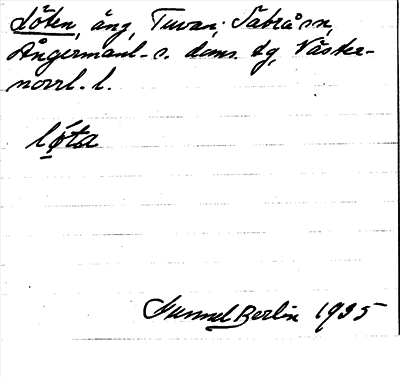 Löten, äng, Tuvan, Tåsjö sn,
Ångermanl. s. doms. dg, Väster-
norrl. l.
löta
Gunnel Berlin 1935